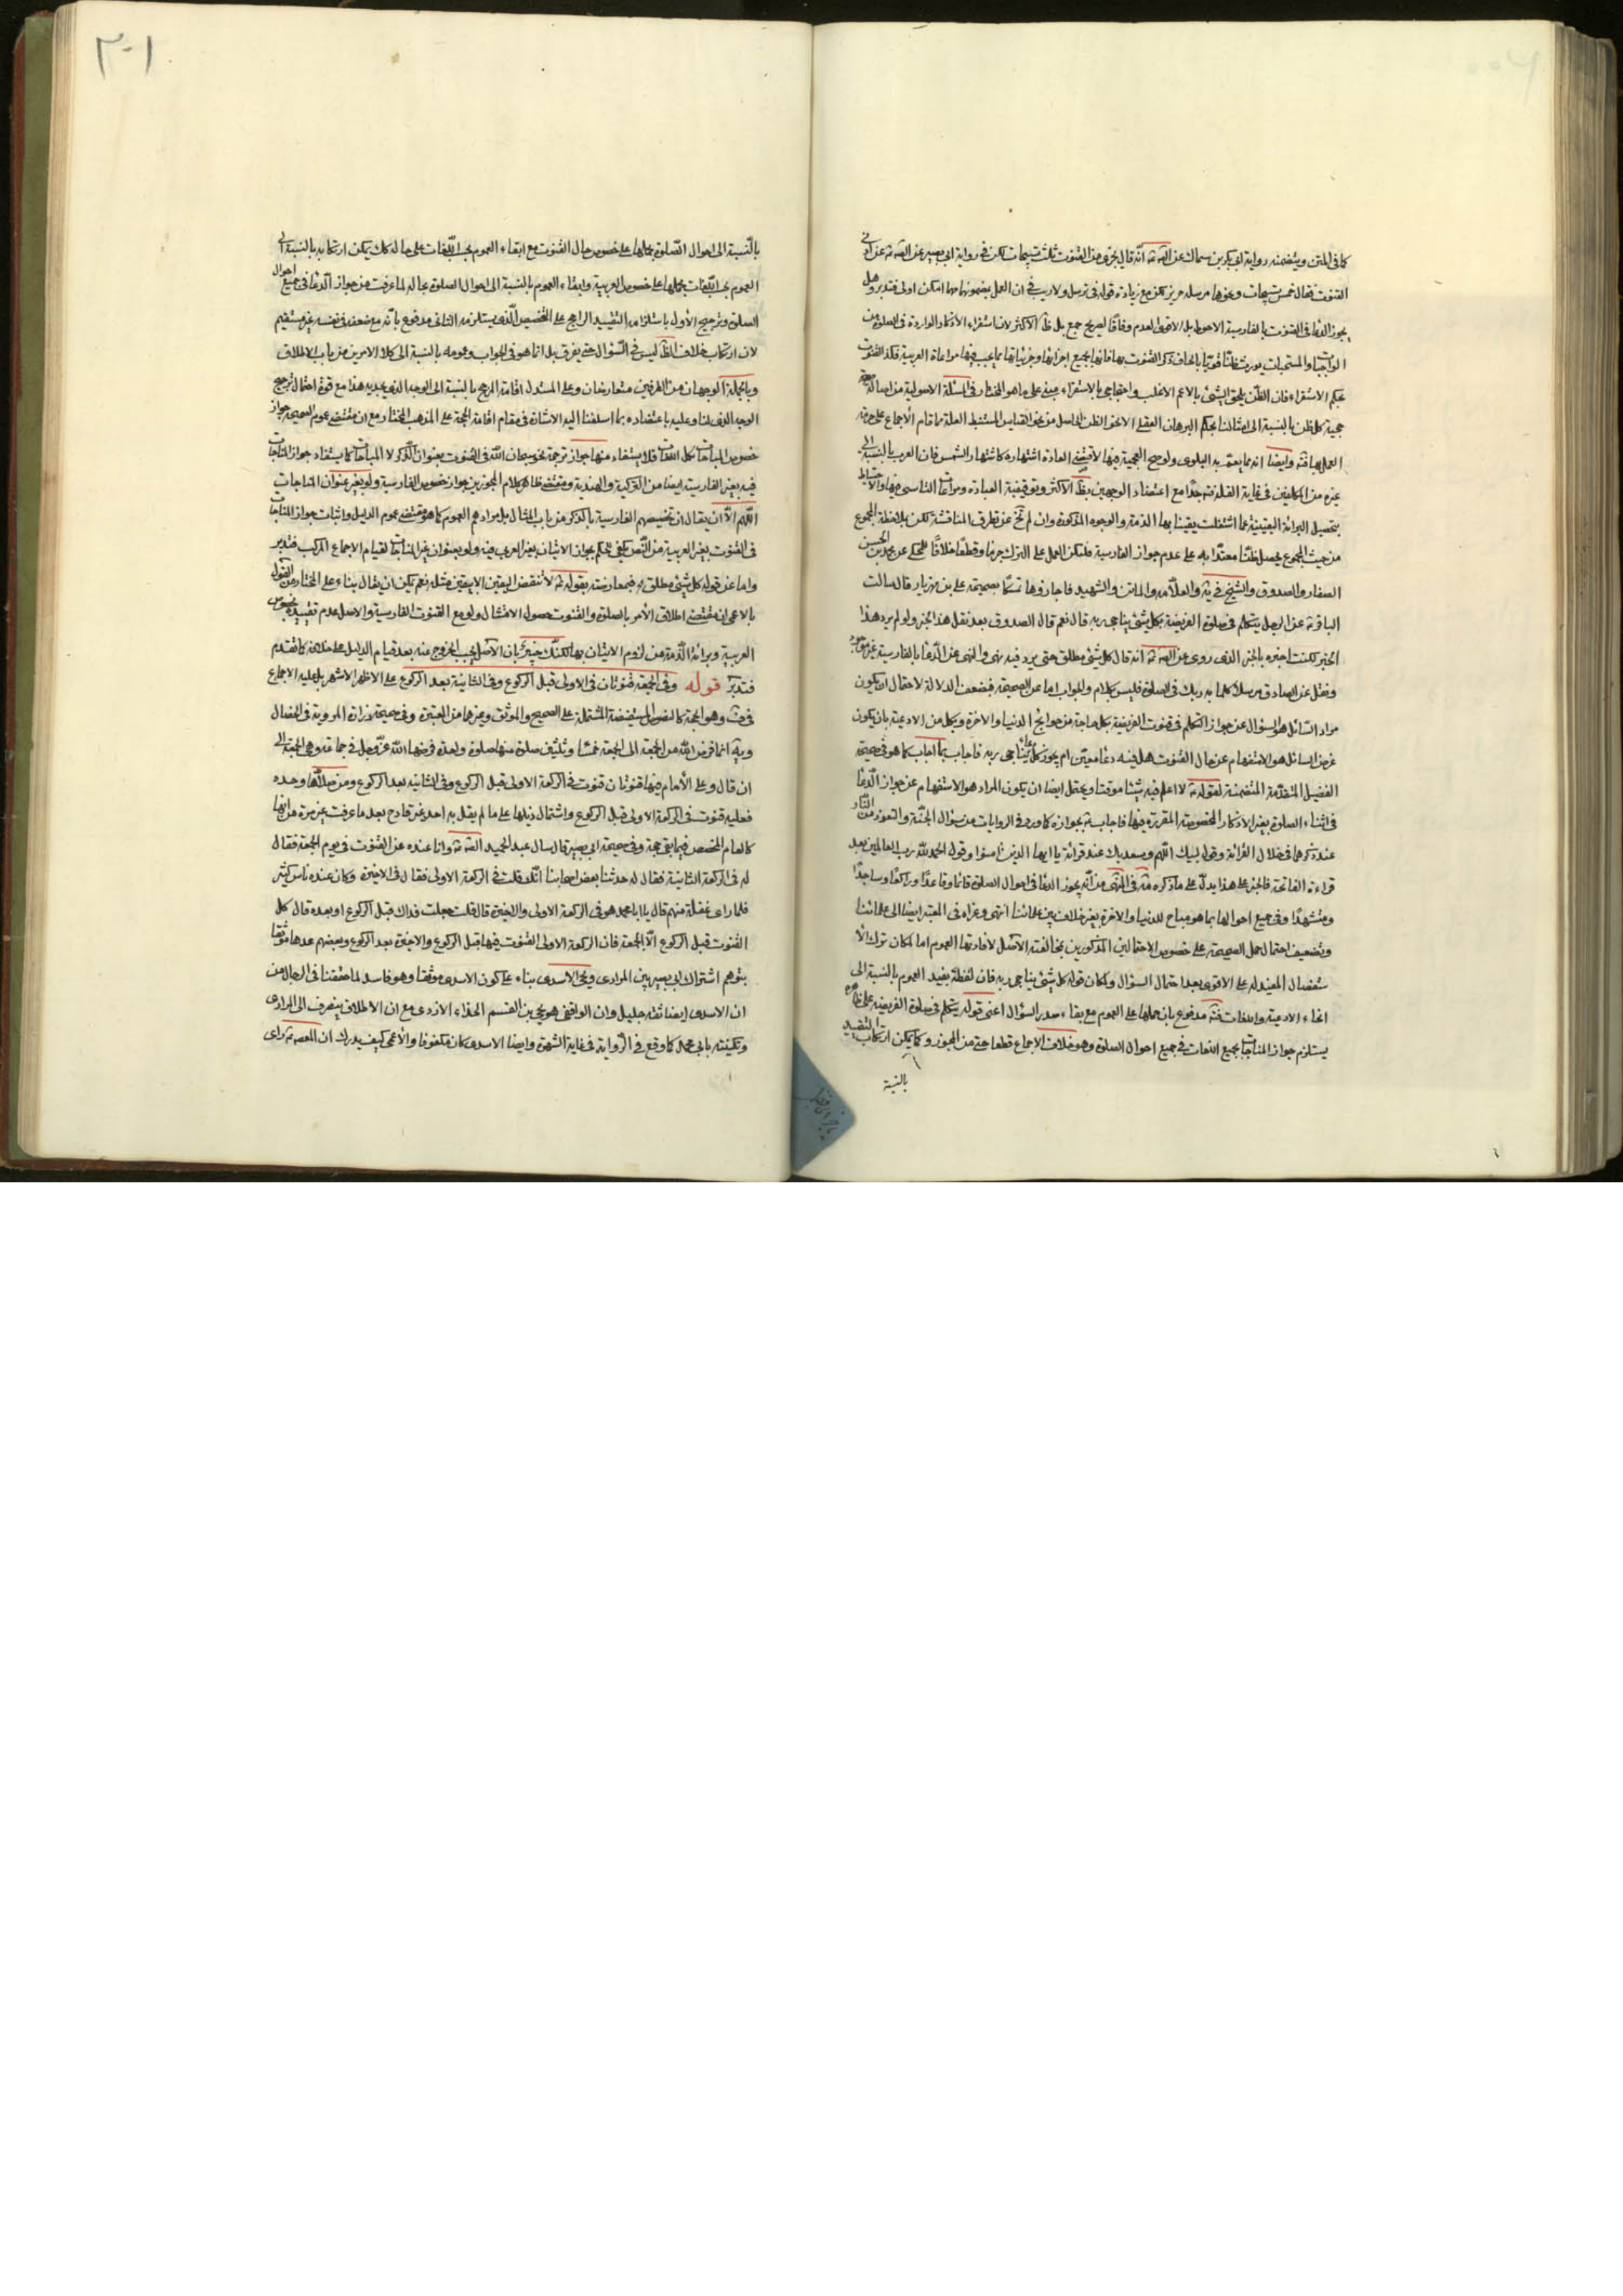 كما في المتن ويتضمنه رواية ابي بكر بن سماك عن الص ع انه قال يجزي من القنوت ثلث تسبيحات لكن في رواية ابي بصير عن الص ع عن ادنى
القنوت فقال خمس تسبيحات ونحوها مرسلة حريز لكن مع زيادة قوله في ترسل ولا ريب في ان العمل بمضمونها مهما امكن اولى فتدبر وهل
يجوز الدعا في القنوت بالفارسية الاحوط بل الاقوى العدم وفاقا لصريح جمع بل ظ الاكثر لان استقراء الاذكار الواردة في الصلوة من
الواجبات والمستحبات يورث ظنا قويا بالحاق ذكر القنوت بها فانها بجميع اجزائها وجزئياتها مما يجب فيها مراعاة العربية فكذا القنوت
بحكم الاستقراء فان الظن يلحق الشئ بالاعم الاغلب واحتجاجي بالاستقراء مبني على ما هو المختار في المسئلة الاصولية من اصالة
حجية كل ظن بالنسبة الى امثالنا بحكم البرهان العقلي الا نحو الظن الحاصل من نحو القياس المستنبط العلة مما قام الاجماع على حرمة
العمل بها فته وايضا انه مما يعم به البلوى ولو صح العجمية فيها لاقتضى العادة اشتهاره كاشتهار الشمس فان العرب بالنسبة الى
غيره من المكلفين في غاية القلة فته جدا مع اعتضاد الوجهين بظ الاكثر وتوقيفية العبادة ومراعات التاسي فيها والاحتياط
بتحصيل البرائة اليقينية عما اشتغلت يقينا بها الذمة والوجوه المذكورة وان لم تخ عن تطرق المناقشة لكن بملاحظة المجموع
من حيث المجموع يحصل ظنا معتدا به على عدم جواز الفارسية فليكن العمل على الترك جزما وقطعا خلافا للمحكي عن محمد بن الحسن
الصفار والصدوق والشيخ في ية والعلامة والماتن والشهيد فاجازوها تمسكا بصحيحة علي بن مهزيار قال سالت
الباقر ع عن الرجل يتكلم في صلوة الفريضة بكل شئ يناجي ربه قال نعم قال الصدوق بعد نقل هذا الخبر ولو لم يرد هذا
الخبر لكنت اجيزه بالخبر الذي روى عن الص ع انه قال كل شئ مطلق حتى يرد فيه نهي والنهي عن الدعا بالفارسية غير موجود
ونقل عن الصادق مرسلا كلما به ربك في الصلوة فليس بكلام والجواب اما عن الصحيحة فبضعف الدلالة لاحتمال ان يكون
مراد السائل هو السؤال عن جواز التكلم في قنوت الفريضة بكل حاجة من حوائج الدنيا والاخرة وبكل من الادعية بان يكون
غرض السائل هو الاستفهام عن حال القنوت هل فيه دعا معين ام يجوز كلما يناجي ربه فاجاب بما اجاب كما هو في صحيحة
الفضيل المتقدمة المتضمنة لقوله ع لا اعلم فيه شيئا موقتا ويحتمل ايضا ان يكون المراد هو الاستفهام عن جواز الدعا
في اثناء الصلوة بغير الاذكار المخصوصة المقررة فيها فاجاب ع بجوازه كما ورد في الروايات من سؤال الجنة والتعوذ من النار
عند ذكرهما في خلال القرائة وقول لبيك اللهم وسعديك عند قرائة يا ايها الذين امنوا وقول الحمد لله رب العالمين بعد
قراءة الفاتحة فالخبر على هذا يدل على ما ذكره مة في المنتهى من انه يجوز الدعا في احوال الصلوة قائما وقاعدا وراكعا وساجدا
ومتشهدا وفي جميع احوالها بما هو مباح للدنيا والاخرة بغير خلاف بين علمائنا انتهى وعزاه في المعتبر ايضا الى علمائنا
وتضعيف احتمال حمل الصحيحة على خصوص الاحتمالين المذكورين بمخالفته الاصل لافادتها العموم اما لمكان ترك الا
ستفصال المفيد له على الاقوى بعد احتمال السؤال ولمكان قوله كل شئ يناجي ربه فان لفظة يفيد العموم بالنسبة الى
انحاء الادعية واللغات فته مدفوع بان حملها على العموم مع بقاء صدر السؤال اعني قوله يتكلم في صلوة الفريضة على ظاهره
يستلزم جواز المناجات بجميع اللغات في جميع احوال الصلوة وهو خلاف الاجماع قطعا حتى من المجوز وكما يمكن ارتكاب التقييد
بالنسبة
٣٠١
بالنسبة الى احوال الصلوة بحملها على خصوص حال القنوت مع ابقاء العموم بحسب اللغات على حاله كك يمكن ارتكابه بالنسبة الى
العموم بحسب اللغات بحملها على خصوص العربية وابقاء العموم بالنسبة الى احوال الصلوة بحاله لما عرفت من جواز الدعا في جميع احوال
الصلوة وترجيح الاول باستلزامه التقييد الراجح على التخصيص الذي يستلزمه الثاني مدفوع بانه مع ضعفه في نفسه غير مستقيم
لان ارتكاب خلاف الظ ليس في السؤال حتى يفرق بل انما هو في الجواب وعمومه بالنسبة الى كلا الامرين من باب الاطلاق
وبالجملة الوجهان من الطرفين متعارضان وعلى المستدل اقامة المرجح بالنسبة الى الوجه الذي يجديه هذا مع قوة احتمال ترجيح
الوجه الذي لنا وعليه باعتضاده بما اسلفنا اليه الاشارة في مقام اقامة الحجة على المذهب المختار مع ان مقتضى عموم الصحيحة جواز
خصوص المناجات بكل اللغات فلا يستفاد منها جواز ترجمة نحو سبحان الله في القنوت بعنوان الذكر لا المناجات كما يستفاد جواز المناجات
فيه بغير الفارسية ايضا من التركية والهندية ومقتضى ظاهر كلام المجوزين جواز خصوص الفارسية ولو بغير عنوان المناجات
اللهم الا ان يقال ان تخصيصهم الفارسية بالذكر من باب المثال بل مرادهم العموم كما هو مقتضى عموم الدليل واثبات جواز المناجات
في القنوت بغير العربية من النص يكفي للحكم بجواز الاتيان بغير العربي فيه ولو بعنوان غير المناجات لقيام الاجماع المركب فتدبر
واما عن قوله كل شئ مطلق اه فبمعارضته بقوله ع لا تنقض اليقين الا بيقين مثله نعم يمكن ان يقال بناء على المختار من القول
بالاعمى ان مقتضى اطلاق الامر بالصلوة والقنوت حصول الامتثال ولو مع القنوت الفارسية والاصل عدم تقييده بخصوص
العربية وبرائة الذمة من لزوم الاتيان بها لكنك خبير بان الاصل يجب الخروج عنه بعد قيام الدليل على خلافه كما تقدم
فتدبر قوله وفي الجمعة قنوتان في الاولى قبل الركوع وفي الثانية بعد الركوع على الاظهر الاشهر بل عليه الاجماع
في ف وهو الحجة كالنصوص المستفيضة المشتملة على الصحيح والموثق وغيرهما من المعتبرة وفي صحيحة زرارة المروية في الخصال
ويه انما فرض الله من الجمعة الى الجمعة خمسا وثلثين صلوة منها صلوة واحدة فرضها الله عز وجل في جماعة وهي الجمعة الى
ان قال وعلى الامام فيها قنوتان قنوت في الركعة الاولى قبل الركوع وفي الثانية بعد الركوع ومن صلاها وحده
فعليه قنوت في الركعة الاولى قبل الركوع واشتمال ذيلها على ما لم يقل به احد غير قادح بعد ما عرفت غير مرة من انها
كالعام المخصص فيما بقي حجة وفي صحيحة ابي بصير قال سال عبد الحميد الص ع وانا عنده عن القنوت في يوم الجمعة فقال
له في الركعة الثانية فقال له حدثنا بعض اصحابنا انك قلت في الركعة الاولى فقال في الاخيرة وكان عنده ناس كثير
فلما راى غفلة منهم قال يا ابا محمد هو في الركعة الاولى والاخيرة قال قلت جعلت فداك قبل الركوع او بعده قال كل
القنوت قبل الركوع الا الجمعة فان الركعة الاولى القنوت فيها قبل الركوع والاخيرة بعد الركوع وبعضهم عدها موثقا
بتوهم اشتراك ابي بصير بين المرادي ويحيى الاسدي بناء على كون الاسدي موثقا وهو فاسد لما حققنا في الرجال من
ان الاسدي ايضا ثقة جليل وان الواقفي هو يحيى بن القسم الحذاء الازدي مع ان الاطلاق ينصرف الى المرادي
وتكنيته بابي محمد كما وقع في الرواية في غاية الشهرة وايضا الاسدي كان مكفوفا والاعمى كيف يدرك ان المعصوم ع راى